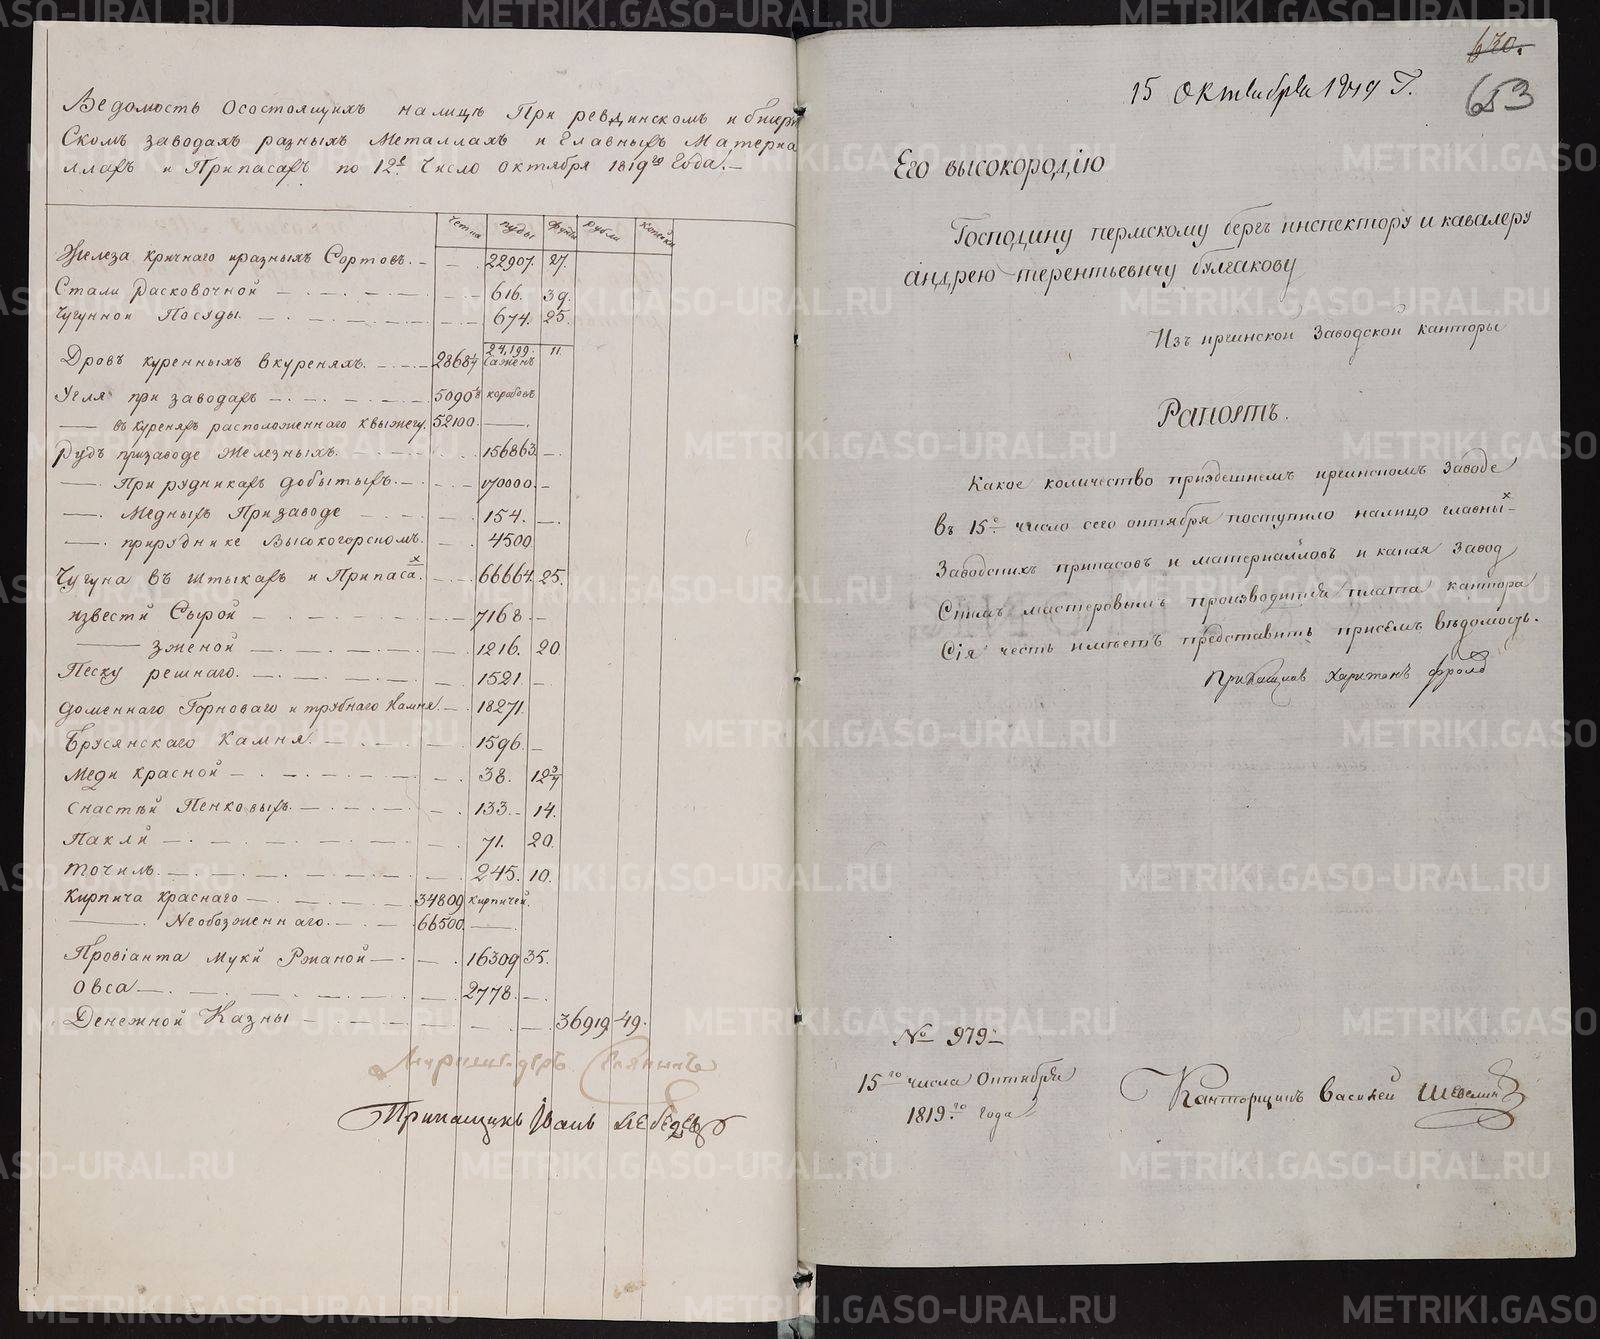 Ведомость осостоящихъ налицъ При ревдинскомъ и бисерт
Скомъ заводахъ разныхъ Металлахъ и Главныхъ Матерна
ллахъ и Припасахъ по 12е число октября 1819го Года.—
Четна пуды фунты Рубли Копейки
Железа кричнаго иразныхъ Сортовъ. 22907. 27.
Стали Расковочной 616. 39.
Чугунной Посуды. 674. 25.
24,199. 11.
Дровъ куренныхъ вкуреняхъ. 28684 сажень
Угля при заводахъ 5090 1/2 коробовъ
— въ куреняхъ расположеннаго квыжегу. 52100.
Рудъ призаводе железныхъ. 156863.
— При рудникахъ добытыхъ. 170000.
— Медныхъ Призаводе 154.
— прируднике Высокогорскомъ. 4500
Чугуна въ штыкахъ и Припасах. 66664. 25.
извести Сырой 7168
— зженой 1216. 20
Песку решнаго. 1521
доменнаго Горноваго и трубнаго Камня. 18271.
Брусянскаго Камня. 1596.
Меди красной 38. 12 3/4
снастей Пенковыхъ. 133. 14.
Пакли 71. 20.
точилъ. 245. 10.
Кирпича краснаго 34809 кирпичей.
— Необозженнаго. 66500.
Провианта муки Ржаной 16309 35.
Овса 2778.
Денежной Казны 36919 49.
Прикащикъ Иванъ Лебедевъ
670.
653
15 октября 1819 Г.
Его высокородію
Господину пермскому бергъ инспектору и кавалеру
андрею терентьевичу булгакову
Изъ иргинской Заводской канторы
Рапортъ.
Какое количество призбешнемъ иргинскомъ Заводе
въ 15е число сего октября поступило налицо главных
Заводскихъ припасовъ и материалловъ и какая Завод
Скимъ мастеровымъ производится плата кантора
Сія честь имѣетъ представить присемъ вѣдомость.
Прикащикъ Харитонъ фролов
№ 979
15го числа Октября
1819го года
Канторщикъ Василей Шевелин
METRIKI.GASO-URAL.RU